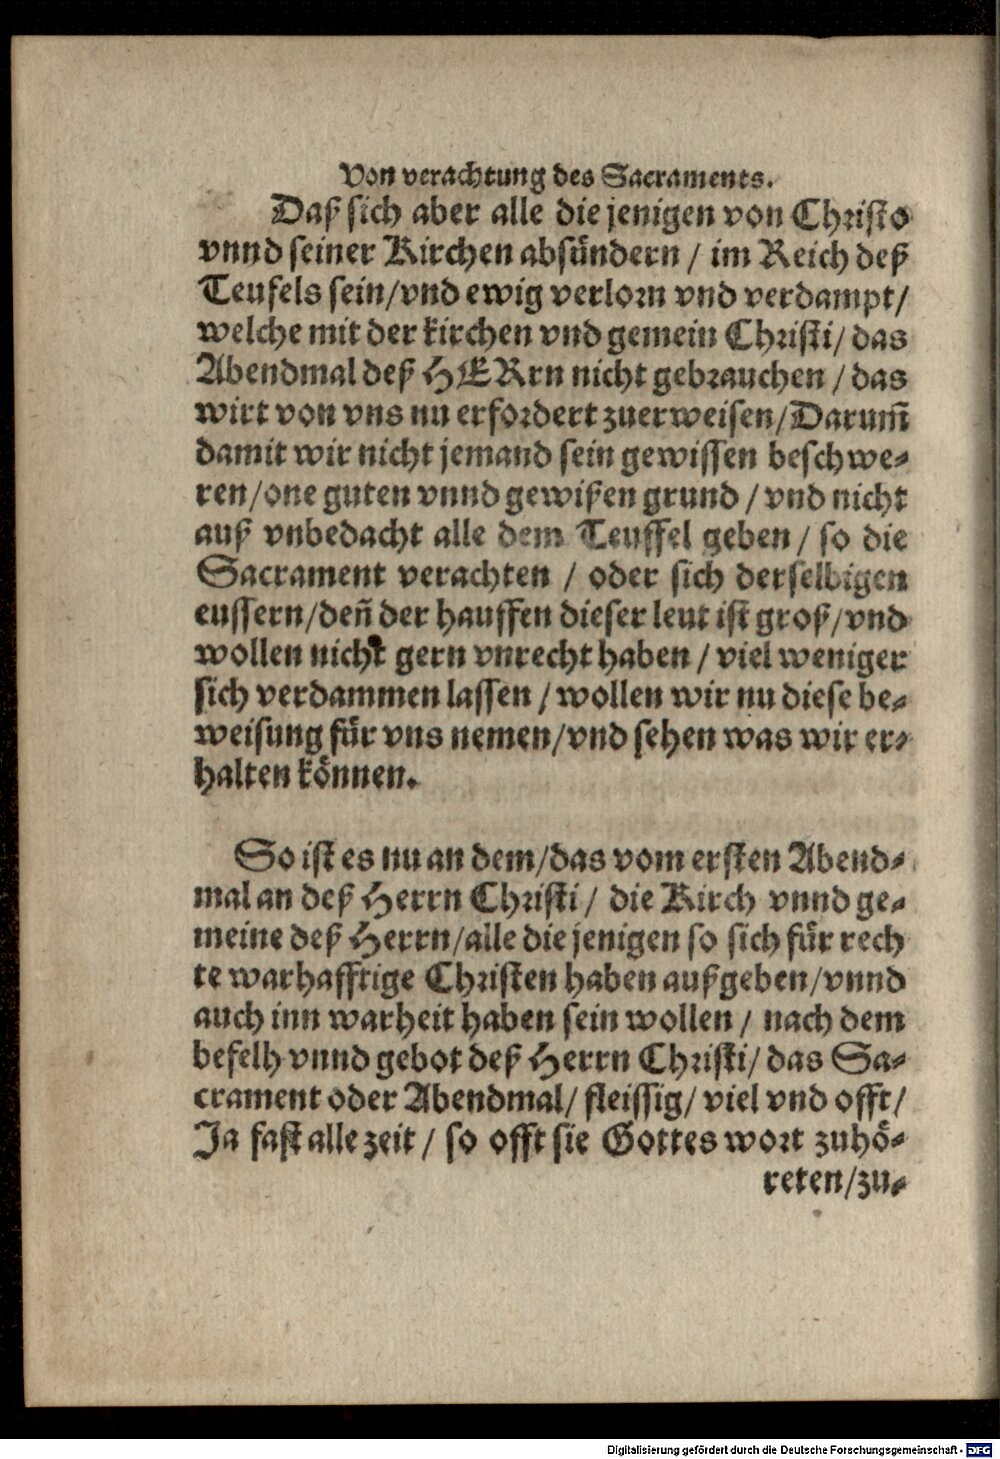 Von verachtung des Sacraments.
Daß sich aber alle die jenigen von Christo
vnnd seiner Kirchen absündern / im Reich deß
Teufels sein/vnd ewig verlorn vnd verdampt/
welche mit der kirchen vnd gemein Christi/ das
Abendmal deß HERrn nicht gebrauchen / das
wirt von vns nu erfordert zuerweisen/Darum̃
damit wir nicht jemand sein gewissen beschwe-
ren/one guten vnnd gewißen grund / vnd nicht
auß vnbedacht alle dem Teuffel geben / so die
Sacrament verachten / oder sich derselbigen
eussern/deñ der hauffen dieser leut ist groß/vnd
wollen nicht gern vnrecht haben / viel weniger
sich verdammen lassen / wollen wir nu diese be-
weisung für vns nemen/vnd sehen was wir er-
halten können.
So ist es nu an dem/das vom ersten Abend-
mal an deß Herrn Christi / die Kirch vnnd ge-
meine deß Herrn/alle die jenigen so sich für rech
te warhafftige Christen haben außgeben/vnnd
auch inn warheit haben sein wollen / nach dem
befelh vnnd gebot deß Herrn Christi/ das Sa-
crament oder Abendmal/ fleissig/ viel vnd offt/
Ja fast alle zeit / so offt sie Gottes wort zuhö-
reten/zu-
Digitalisierung gefördert durch die Deutsche Forschungsgemeinschaft - DFG